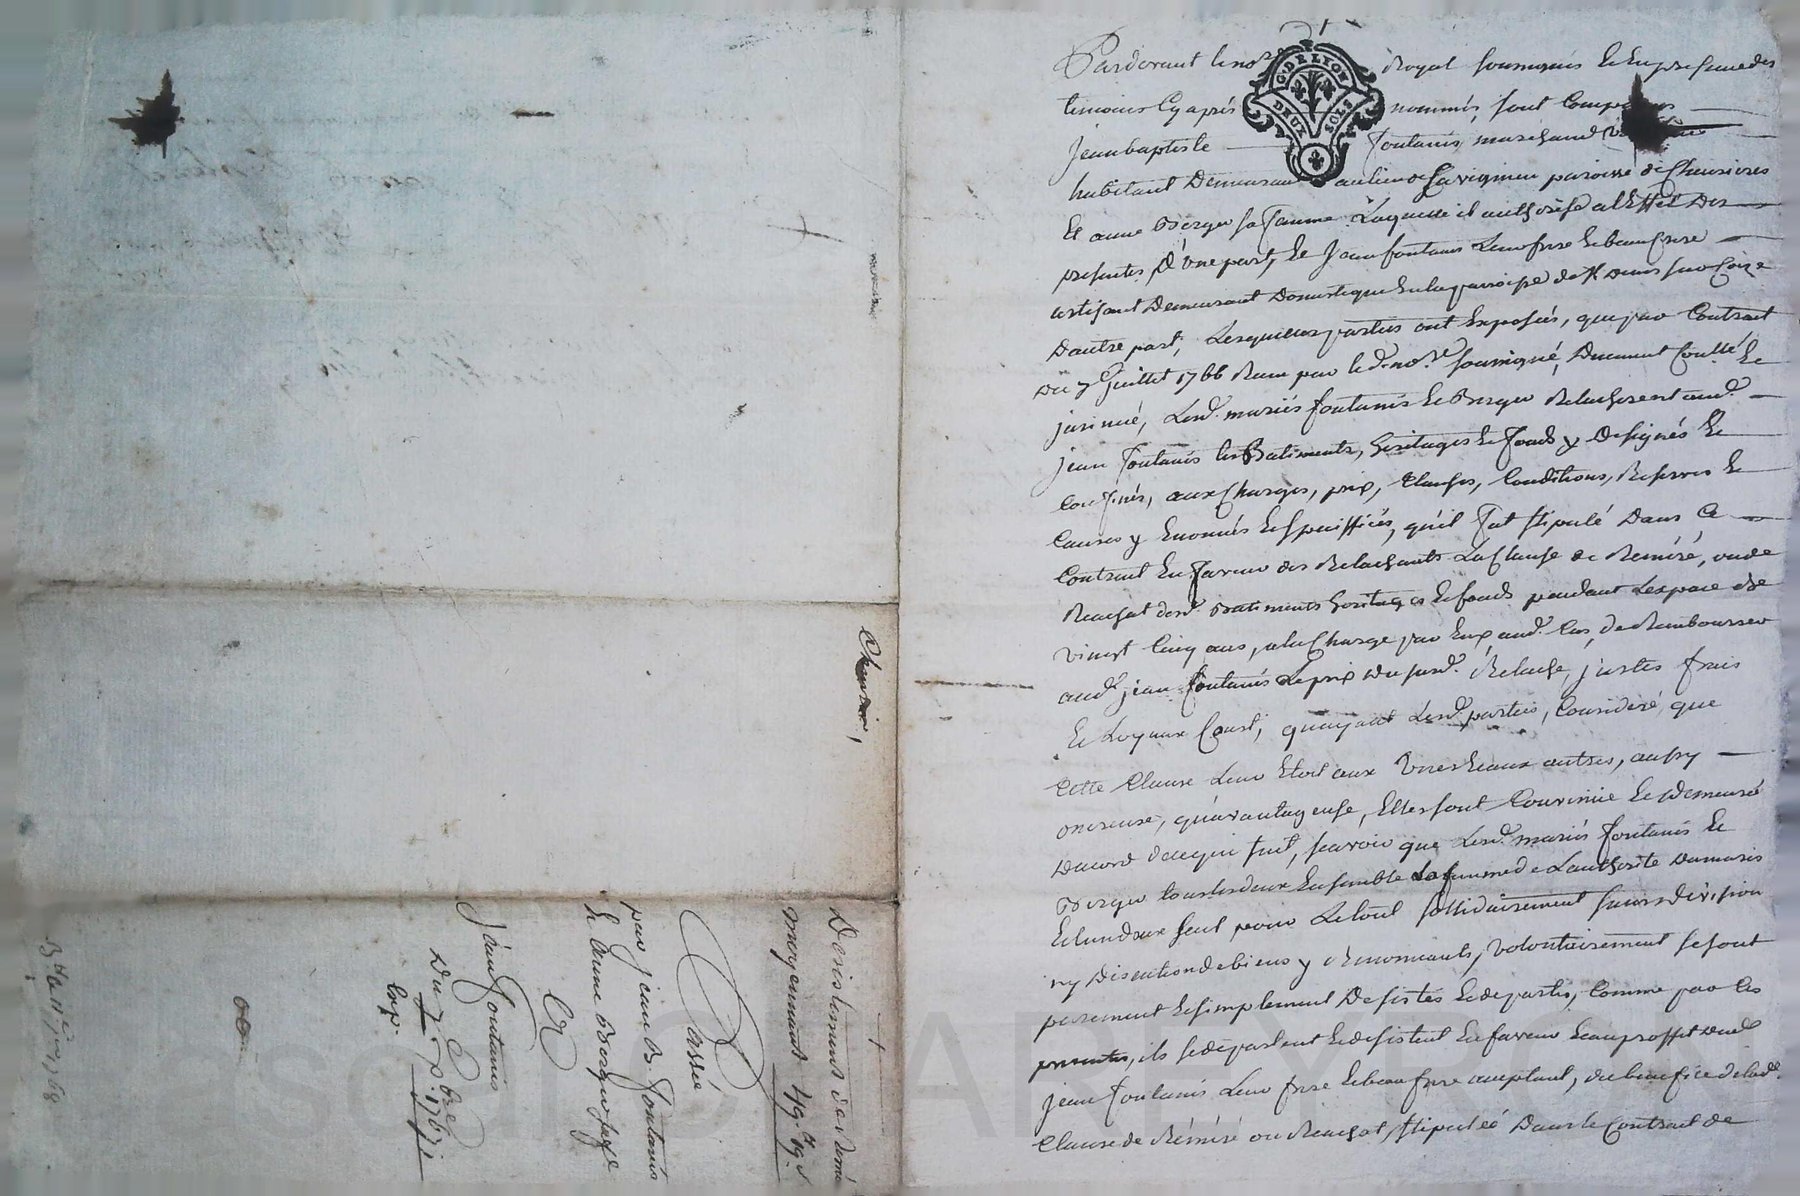 Pardevant le no.re Royal soussigné et en presence des
temoins cy après nommés, sont comparus
G. DE LYON
DEUX SOLS
Jean baptiste Fontanis, marchand
habitant demeurant au lieu de Savigneu paroisse de Chevrieres
et anne Berger sa famme laquelle il authorise a l'effet des
presentes d'une part, et Jean fontanis leur frere et beaufrere
artisant demeurant domestique en la parroisse de St denis sur Coize
d'autre part, Lesquelles parties ont exposées, que par Contract
du 7 Juillet 1766 Receu par led. no.re soussigné, Duement Conllé et
jnsinué, Lesd. mariés fontanis et Berger Relacherent aud.
jean Fontanis les Batiments, heritages et fonds y designés et
Confinés, aux Charges, prix, Clauses, Conditions, Reserves et
Causes y Enoncés et speciffiés, qu'il fut stipulé dans ce
Contract en faveur des Relachants la Clause de Réméré, ou de
Rachat desd. Batiments heritages et fonds pendant l'espace de
vingt Cinq ans, a la Charge par Eux aud. Cas, de Rembourser
aud. jean Fontanis le prix du susd. Relache, justes frais
et Loyaux Coust, qu'ayant Lesd. parties, Considéré, que
Cette Clause leur Etoit aux unes et aux autres, aussy
onereuse, qu'avantageuse, Elles sont Convenue et demeuré
d'acord de ce qui suit, scavoir que Lesd. mariés Fontanis et
Berger tous les deux Ensemble la femme de l'authorité du maris
et l'un d'eux seul pour le tout sollidairement sans division
ny discution de biens y Renonceants, volontairement se sont
purement et simplement desistés et departis, Comme par les
presentes, ils se departent et desistent en faveur et au proffit dud.
jean Fontanis leur frere et beaufrere acceptant, du benefice de lad.
Clause de Réméré ou Rachat, stipulée dans le Contract de
Chevrier,
Desistement de Réméré
moyennant 49.tt 19.s
Passée
par jean B. Fontanis
et anne Berger sa fe
A
Jean Fontanis
Du 7 7bre 1767
Exp.